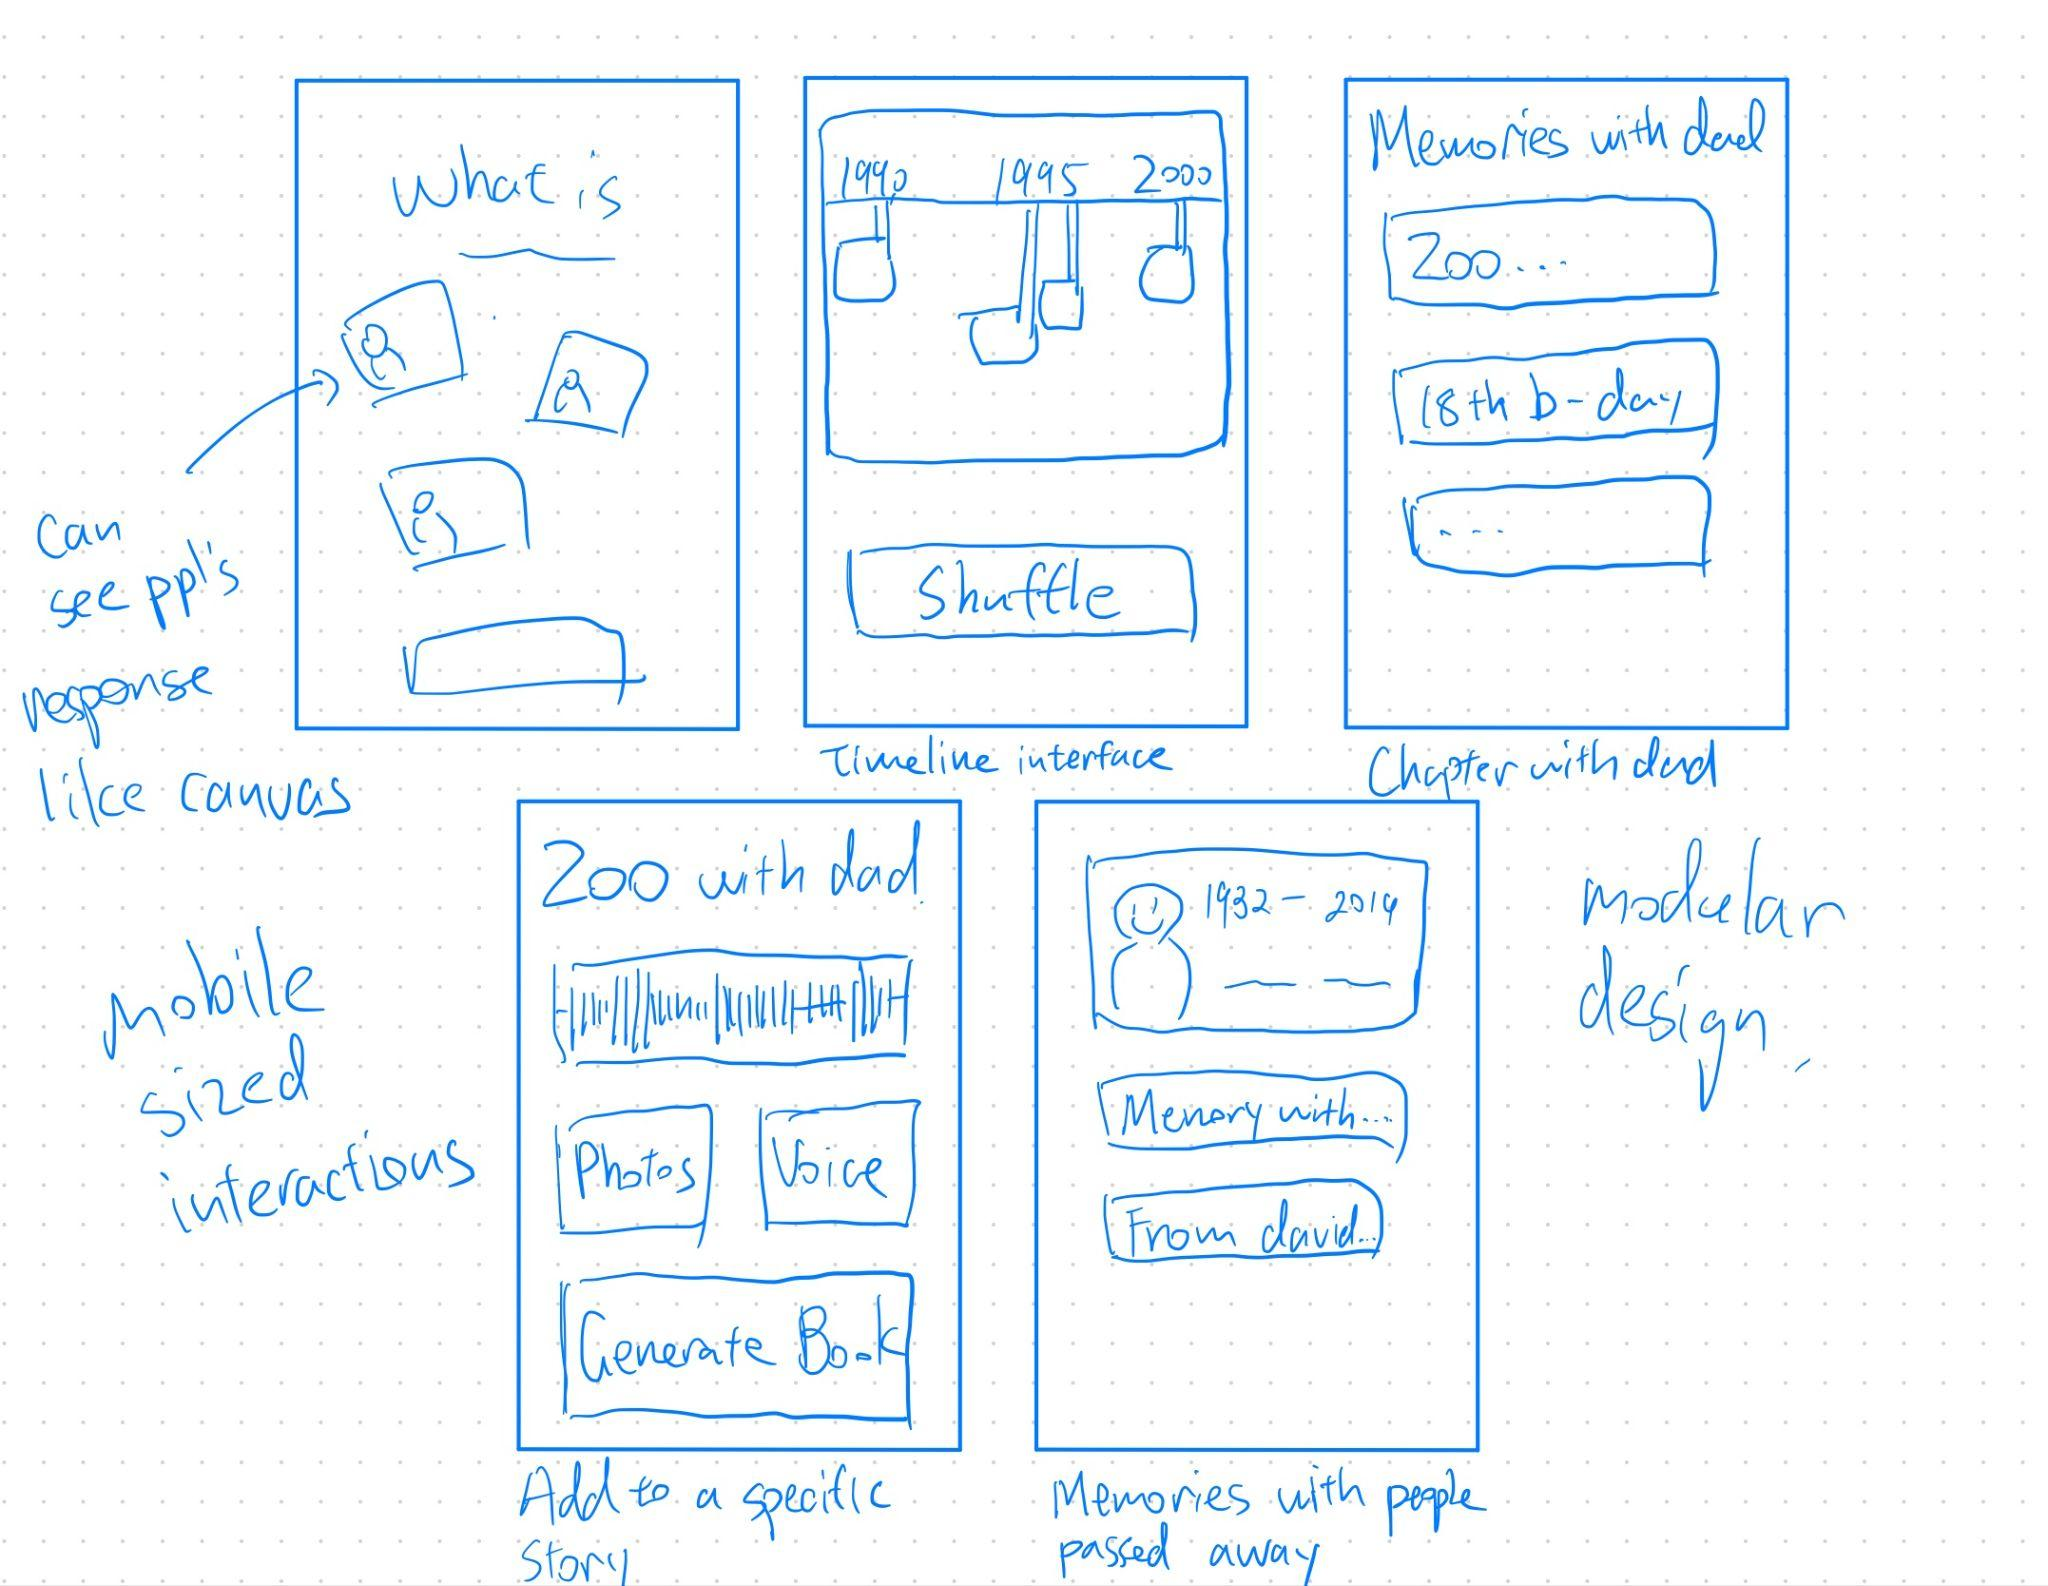 What is
Can
see ppl's
response
like canvas
1990 1995 2000
Shuffle
Timeline interface
Memories with dad
Zoo...
18th b-day
...
Chapter with dad
mobile
sized
interactions
Zoo with dad
Photos
Voice
Generate Book
Add to a specific
story
1932 - 2019
Memory with...
From david...
Memories with people
passed away
modular
design